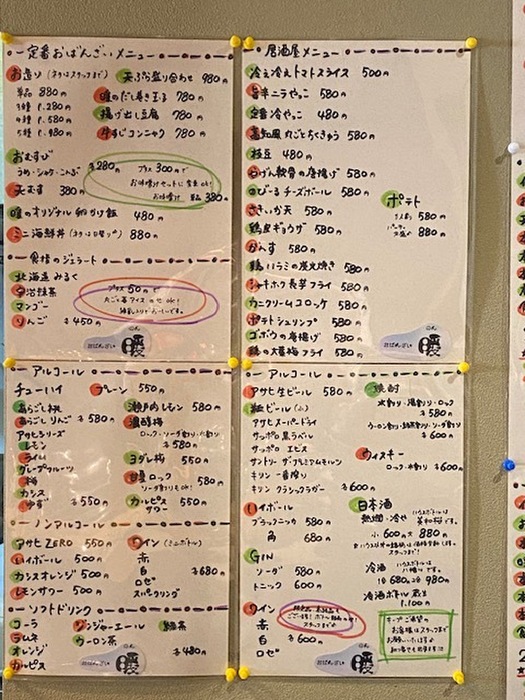 定番おばんざいメニュー
お造り (ネタはスタッフまで)
単品 880円
3種 P.280円
4種 P.580円
5種 P.980円
天ぷら盛り合わせ 980円
唯のだし巻き玉子 780円
揚げ出し豆腐 780円
牛すじコンニャク 780円
おむすび
うめ・シャケ・こんぶ 各280円
天むす 380円
プラス300円で
お味噌汁セットに変更ok!
お味噌汁 単品 380円
唯のオリジナル卵かけ飯 480円
ミニ海鮮丼 880円
食後のジェラート
北海道みるく
宇治抹茶
マンゴー
りんご 各450円
プラス50円で
おばんざい
居酒屋メニュー
冷え冷えトマトスライス 500円
旨辛ニラやっこ 580円
定番冷やっこ 480円
高知風丸ごとちくきゅう 580円
枝豆 480円
白げん軟骨の唐揚げ 580円
のび〜るチーズボール 580円
さきいか天 580円
鶏皮ギョウザ 580円
がんす 580円
鶏ハラミの炭火焼き 580円
シャキホク長芋フライ 580円
カニクリームコロッケ 580円
ポテトシュリンプ 580円
ゴボウの唐揚げ 580円
鶏の大葉梅フライ 580円
ポテト
580円
880円
おばんざい
アルコール
チューハイ
プレーン 550円
あらごし桃
あらごしりんご 各580円
アサヒシリーズ
レモン
ライム
グレープフルーツ
梅
カシス
ゆず 各550円
瀬戸内レモン 580円
濃醇梅
ロック・ソーダ割り・水割り
各580円
ヨダレ梅 550円
甘夏ロック 580円
ソーダ割りもok!
カルピス
サワー 550円
ノンアルコール
アサヒZERO 550円
ハイボール 500円
カシスオレンジ 500円
レモンサワー 500円
ワイン (ミニボトル)
赤
白
ロゼ
スパークリング
各680円
ソフトドリンク
コーラ
ラムネ
オレンジ
カルピス
ジンジャーエール
ウーロン茶
緑茶
各480円
おばんざい
アルコール
アサヒ生ビール 580円
瓶ビール (小)
アサヒスーパードライ
サッポロ黒ラベル
サッポロ エビス
サントリー ザ・プレミアムモルツ
キリン 一番搾り
キリン クラシックラガー 各600円
ハイボール
ブラックニッカ 580円
角 680円
GIN
ソーダ 580円
トニック 600円
ワイン
赤
白
ロゼ
各600円
焼酎
水割り・湯割り・ロック
各580円
ウーロン割り・緑茶割り・ソーダ割り
各600円
ウィスキー
ロック・水割り 各600円
日本酒
熱燗・冷や
小 600円 大 880円
冷酒
1合 680円 2合 980円
冷酒ボトル
1,100円
キープご希望の
お客様はスタッフまで
お願いいたします
おばんざい